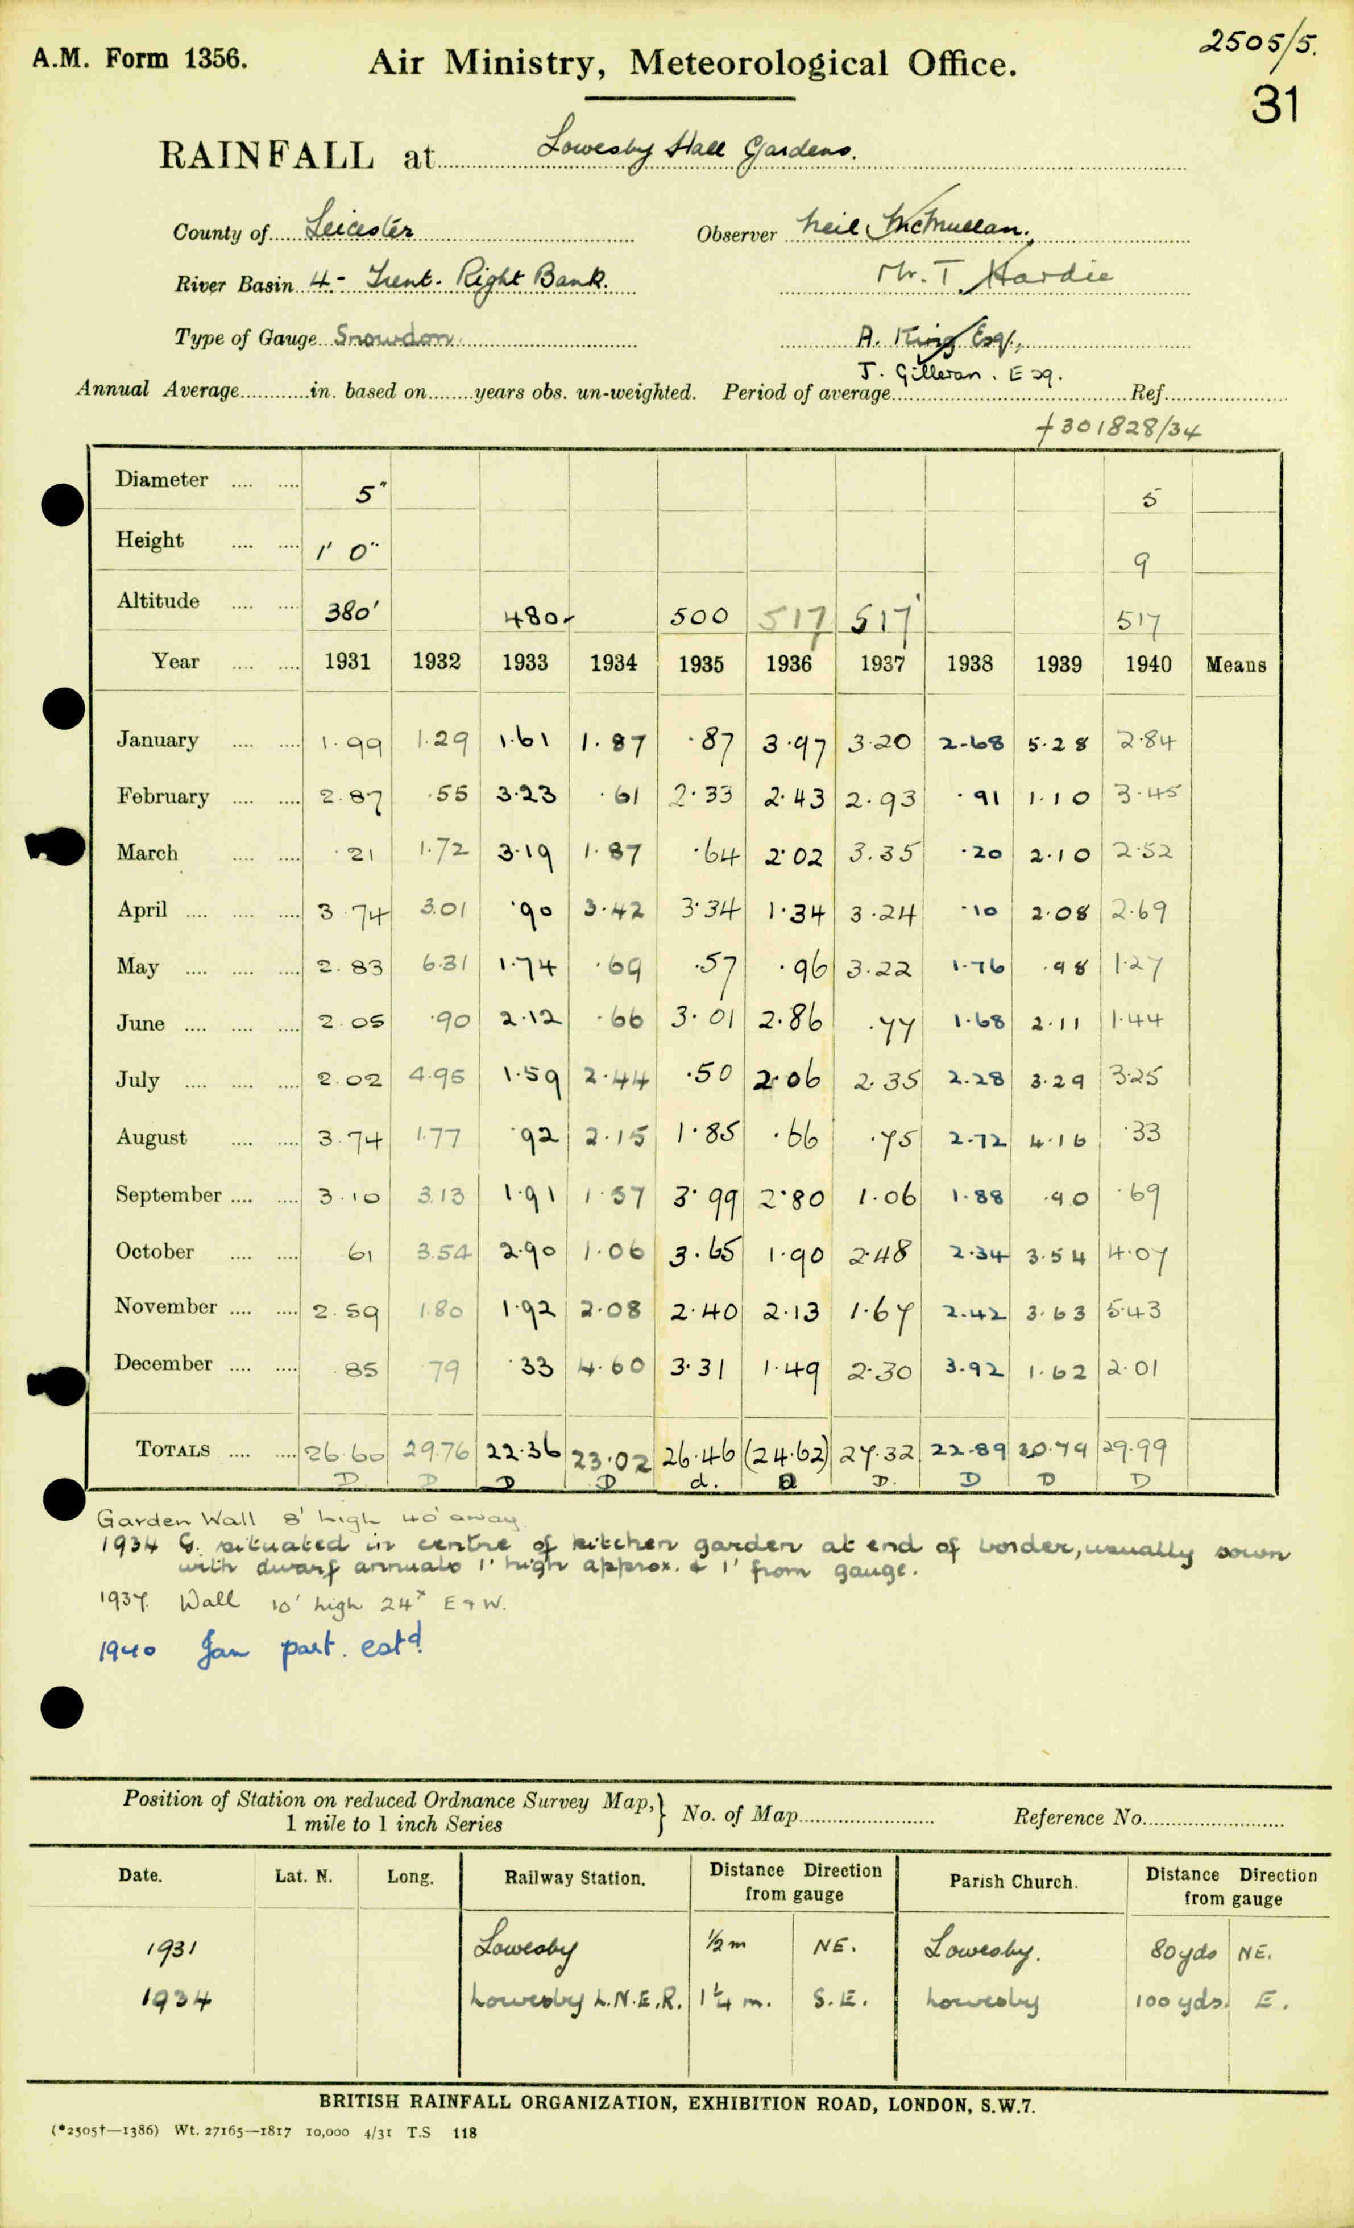 2505/5.
A.M. Form 1356. Air Ministry, Meteorological Office.
31
RAINFALL at Lowesby Hall Gardens.
County of Leicester Observer Neil McMullan.
River Basin 4.- Trent. Right Bank. Mr. T. Hardie
Type of Gauge Snowdon. A. King Esq.,
J. Gilleran. Esq.
Annual Average............in. based on........years obs. un-weighted. Period of average........Ref........
†301828/34
Diameter .... .... 5" 5
Height .... .... 1' 0" 9
Altitude .... .... 380' 480 500 517 517' 517
Year .... .... 1931 1932 1933 1934 1935 1936 1937 1938 1939 1940 Means
January .... .... 1.99 1.29 1.61 1.87 .87 3.97 3.20 2.68 5.28 2.84
February .... .... 2.87 .55 3.23 .61 2.33 2.43 2.93 .91 1.10 3.45
March .... .... .21 1.72 3.19 1.87 .64 2.02 3.35 .20 2.10 2.52
April .... .... .... 3.74 3.01 .90 3.42 3.34 1.34 3.24 .10 2.08 2.69
May .... .... .... 2.83 6.31 1.74 .69 .57 .96 3.22 1.76 .98 1.27
June .... .... .... 2.05 .90 2.12 .66 3.01 2.86 .77 1.68 2.11 1.44
July .... .... .... 2.02 4.95 1.59 2.44 .50 2.06 2.35 2.28 3.29 3.25
August .... .... 3.74 1.77 .92 2.15 1.85 .66 .75 2.72 4.16 .33
September .... .... 3.10 3.13 1.91 1.57 3.99 2.80 1.06 1.88 .90 .69
October .... .... 61 3.54 2.90 1.06 3.65 1.90 2.48 2.34 3.54 4.07
November .... .... 2.59 1.80 1.92 2.08 2.40 2.13 1.67 2.42 3.63 5.43
December .... .... 85 79 .33 4.60 3.31 1.49 2.30 3.92 1.62 2.01
TOTALS .... .... 26.60 29.76 22.36 23.02 26.46 (24.62) 27.32 22.89 30.79 29.99
D D D D d. D D D D
Garden Wall 8' high 40' away
1934 G. situated in centre of kitchen garden at end of border, usually sown
with dwarf annuals 1' high approx. & 1' from gauge.
1937. Wall 10' high 24' E & W.
1940 Jan part. estd.
Position of Station on reduced Ordnance Survey Map,} No. of Map........ Reference No.........
1 mile to 1 inch Series
Date. Lat. N. Long. Railway Station. Distance Direction from gauge Parish Church. Distance Direction from gauge
1931 Lowesby ½ m NE. Lowesby. 80 yds NE.
1934 Lowesby L.N.E.R. 1¼ m. S.E. Lowesby 100 yds. E.
BRITISH RAINFALL ORGANIZATION, EXHIBITION ROAD, LONDON, S.W.7.
(*2505†—1386) Wt. 27165—1817 10,000 4/31 T.S 118